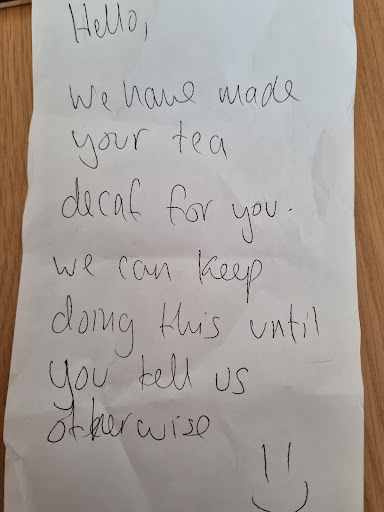 Hello,
We have made
your tea
decaf for you.
We can keep
doing this until
you tell us
otherwise